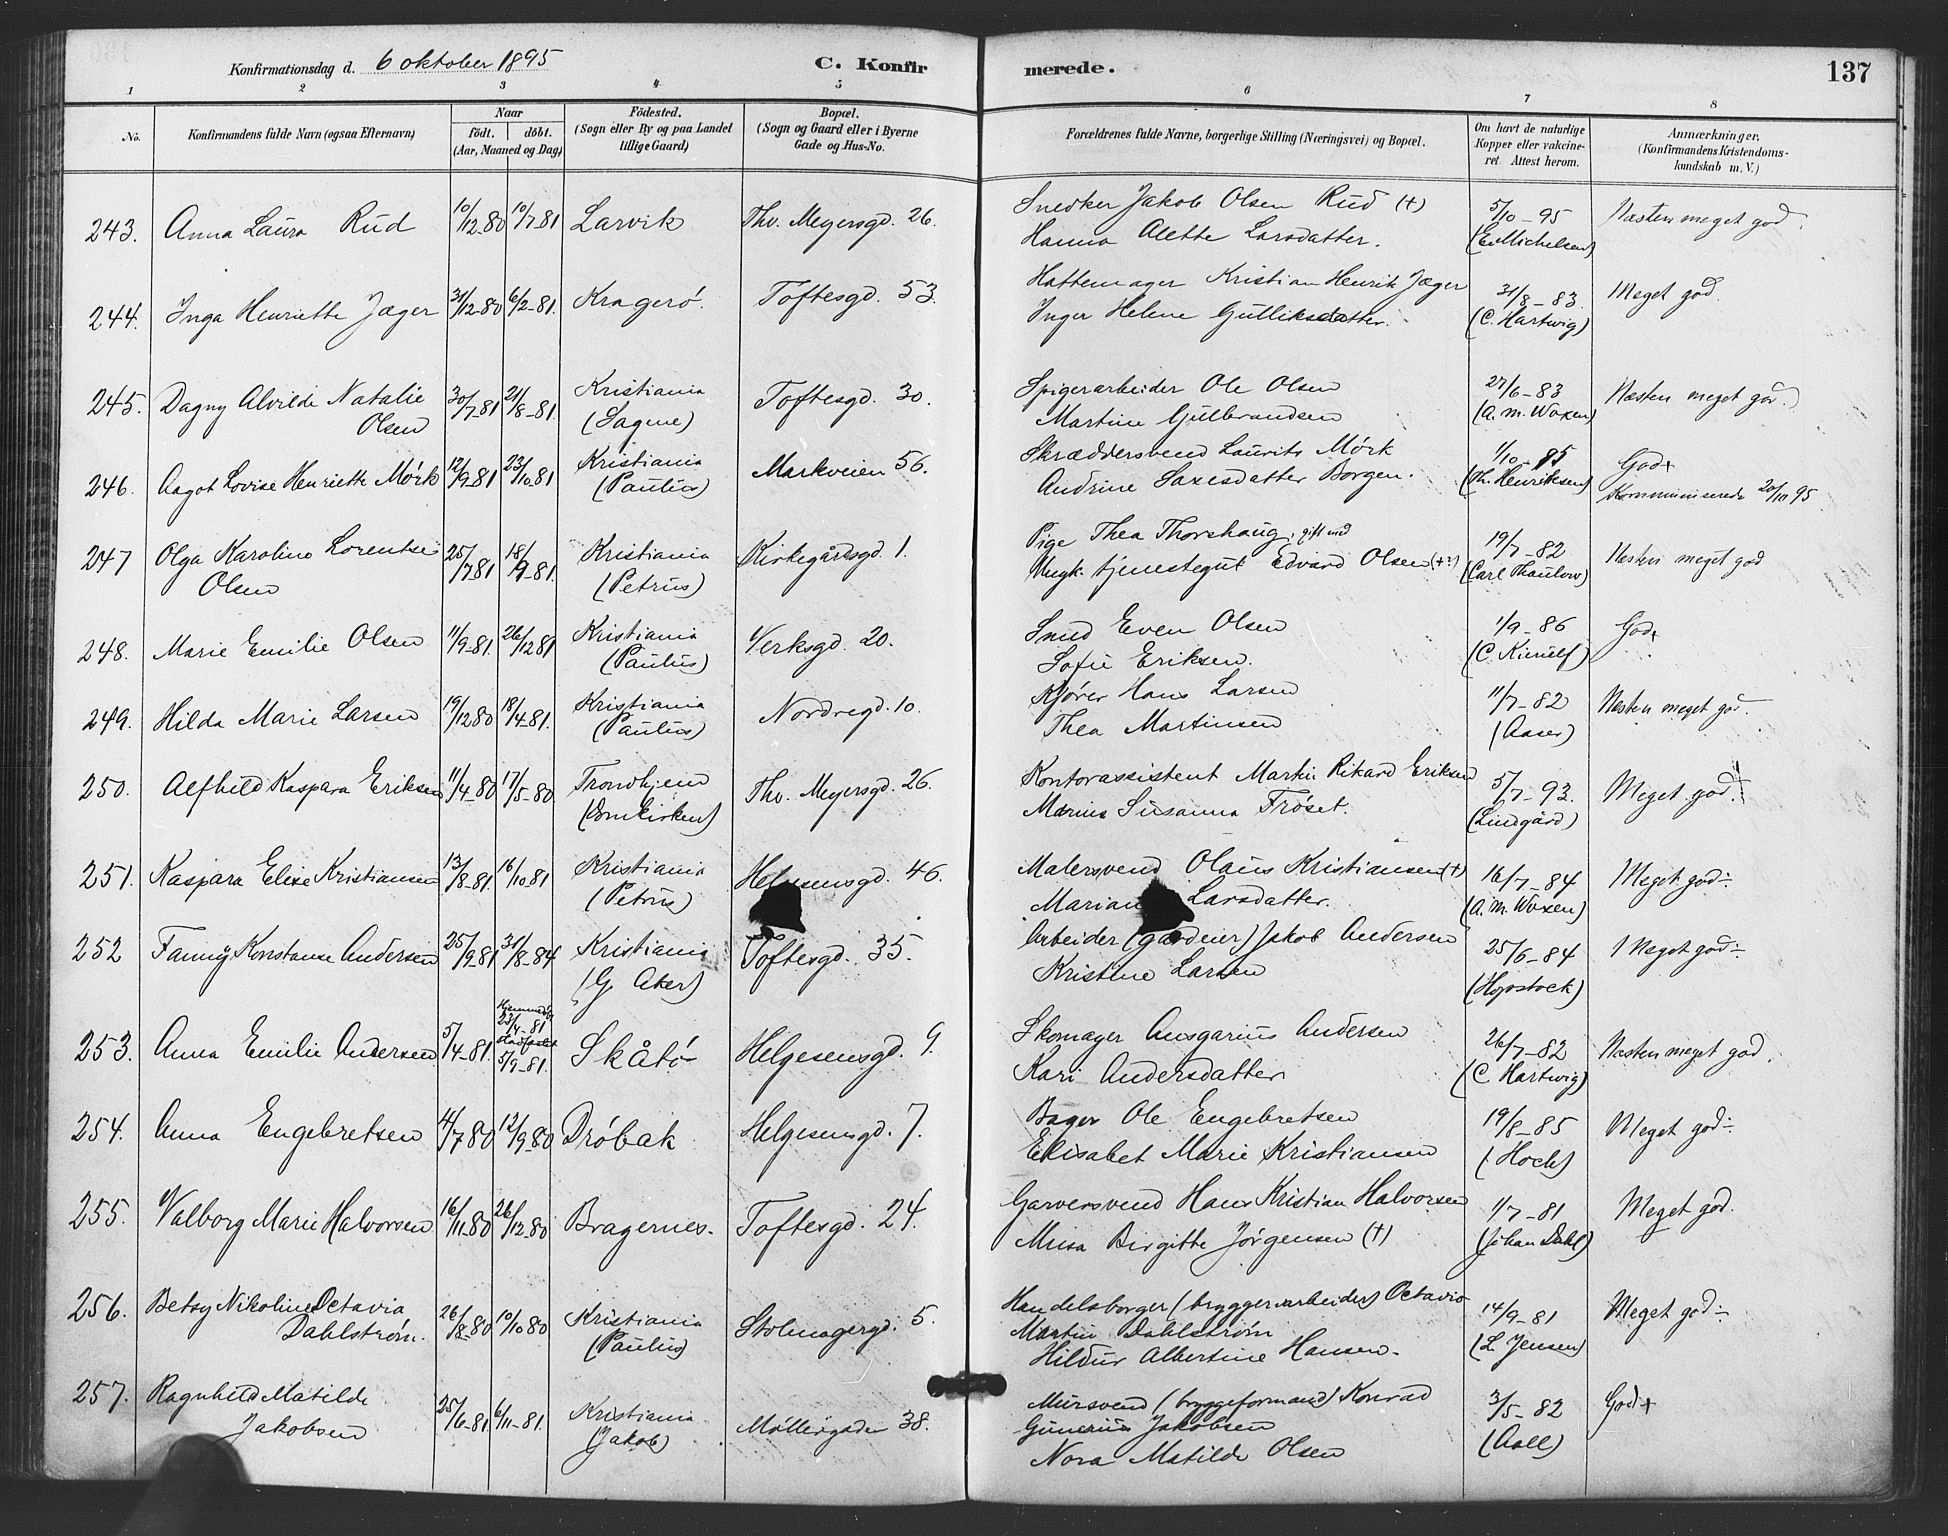 Konfirmationsdag d. 6 oktober 1895 C. Konfirmerede. 137
1 2 3 4 5 6 7 8
No.
Konfirmandens fulde Navn (ogsaa Efternavn)
Naar
födt. döbt.
(Aar, Maaned og Dag)
Födested.
(Sogn eller By og paa Landet
tillige Gaard)
Bopæl.
(Sogn og Gaard eller i Byerne
Gade og Hus-No.
Forældrenes fulde Navne, borgerlige Stilling (Næringsvei) og Bopæl.
Om havt de naturlige
Kopper eller vakcine-
ret Attest herom.
Anmærkninger,
(Konfirmandens Kristendoms-
kundskab m. V.)
243. Anna Laura Rud 10/12-80 10/7-81 Larvik Thv. Meyersgd. 26.
Snedker Jakob Olsen Rud (+)
Hanna Alette Larsdatter.
5/10-95
(E. Michelsen)
Næsten meget god.
244. Inga Henriette Jæger 31/12-80 6/2-81. Kragerö. Toftesgd. 53.
Hattemager Kristian Henrik Jæger
Inger Helene Gulliksdatter.
31/8-83.
(C. Hartwig)
Meget god.
245. Dagny Alvilde Natalie
Olsen
30/7 81 21/8-81.
Kristiania
(Sagene)
Toftesgd. 30.
Spigerarbeider Ole Olsen
Martine Gulbrandsen
27/6-83
(A. M. Woxen)
Næsten meget god.
246. Aagot Lovise Henriette Mörk 12/9-81 23/10-81
Kristiania
(Paulus)
Markveien 56.
Skræddersvend Laurits Mörk
Andrine Saxesdatter Borgen.
1/10-85
(Th. Henriksen)
God+
Kommuniserede 20/10 95
247 Olga Karoline Lorentse
Olsen
25/7 81 18/9-81.
Kristiania
(Petrus)
Kirkegårdsgd. 1.
Pige Thea Thorshaug, gift med
Ungk. tjenestegut Edvard Olsen (+?)
19/7-82
(Carl Thaulow)
Næsten meget god
248. Marie Emilie Olsen 11/9-81. 26/12 81
Kristiania
(Paulus)
Verksgd. 20.
Smed Even Olsen
Sofie Eriksen.
1/9-86
(C. Kierulf)
God+
249. Hilda Marie Larsen 19/12 80 18/4-81.
Kristiania
(Paulus)
Nordregd. 10.
Kjörer Hans Larsen
Thea Martinsen
11/7-82
(Aaser)
Næsten meget god.
250. Alfhild Kaspara Eriksen 11/4-80 17/5-80.
Trondhjem
(Domkirken)
Thv. Meyersgd. 26.
Kontorassistent Martin Rikard Eriksen
Marius Susanna Fröset.
5/7-93.
(Lindgård)
Meget god.
251. Kaspara Elise Kristiansen 13/8-81. 16/10 81
Kristiania
(Petrus)
Helgesensgd. 46.
Malersvend Olaus Kristiansen (+)
Larsdatter.
16/7-84
(A. M. Woxen)
Meget god÷.
252 Fanny Konstanse Andersen 25/9-81 31/8-84
Kristiania
(G. Aker)
Toftesgd. 35.
Arbeider (gardeier) Jakob Andersen
Kristine Larsen
25/6-84
(Hopstock)
Meget god÷
253. Anna Emilie Andersen 5/4-81.
Hjemmedöbt
23/4-81
Stadfæstet
5/9-81.
Skåtö Helgesensgd. 9.
Skomager Ansgarius Andersen
Kari Andersdatter
26/7-82
(C Hartwig)
Næsten meget god.
254. Anna Engebretsen 4/7 80 12/9-80 Dröbak Helgesensgd. 7.
Bager Ole Engebretsen
Elisabet Marie Kristiansen
19/8-85
(Hoch)
Meget god÷
255. Valborg Marie Halvorsen 16/11-80 26/12 80 Bragernes. Toftesgd. 24.
Garversvend Hans Kristian Halvorsen
Birgitte Jörgensen (+)
1/7-81
(Johan Dahl)
Meget god.
256. Betsy Nikoline Octavia
Dahlström.
26/8-80 10/10 80
Kristiania
(Paulus)
Stolmagergd. 5.
Handelsborger (bryggerarbeider) Octavio
Martin Dahlström
Hildur Albertine Hansen.
14/9-81
(L. Jensen)
Meget god÷
257. Ragnhild Matilde
Jakobsen
25/6-81 6/11-81.
Kristiania
(Jakob)
Möllergaden 38.
Mursvend (bryggeformand) Konrad
Gunerius Jakobsen
Nora Matilde Olsen
3/5-82
(Aall)
God+